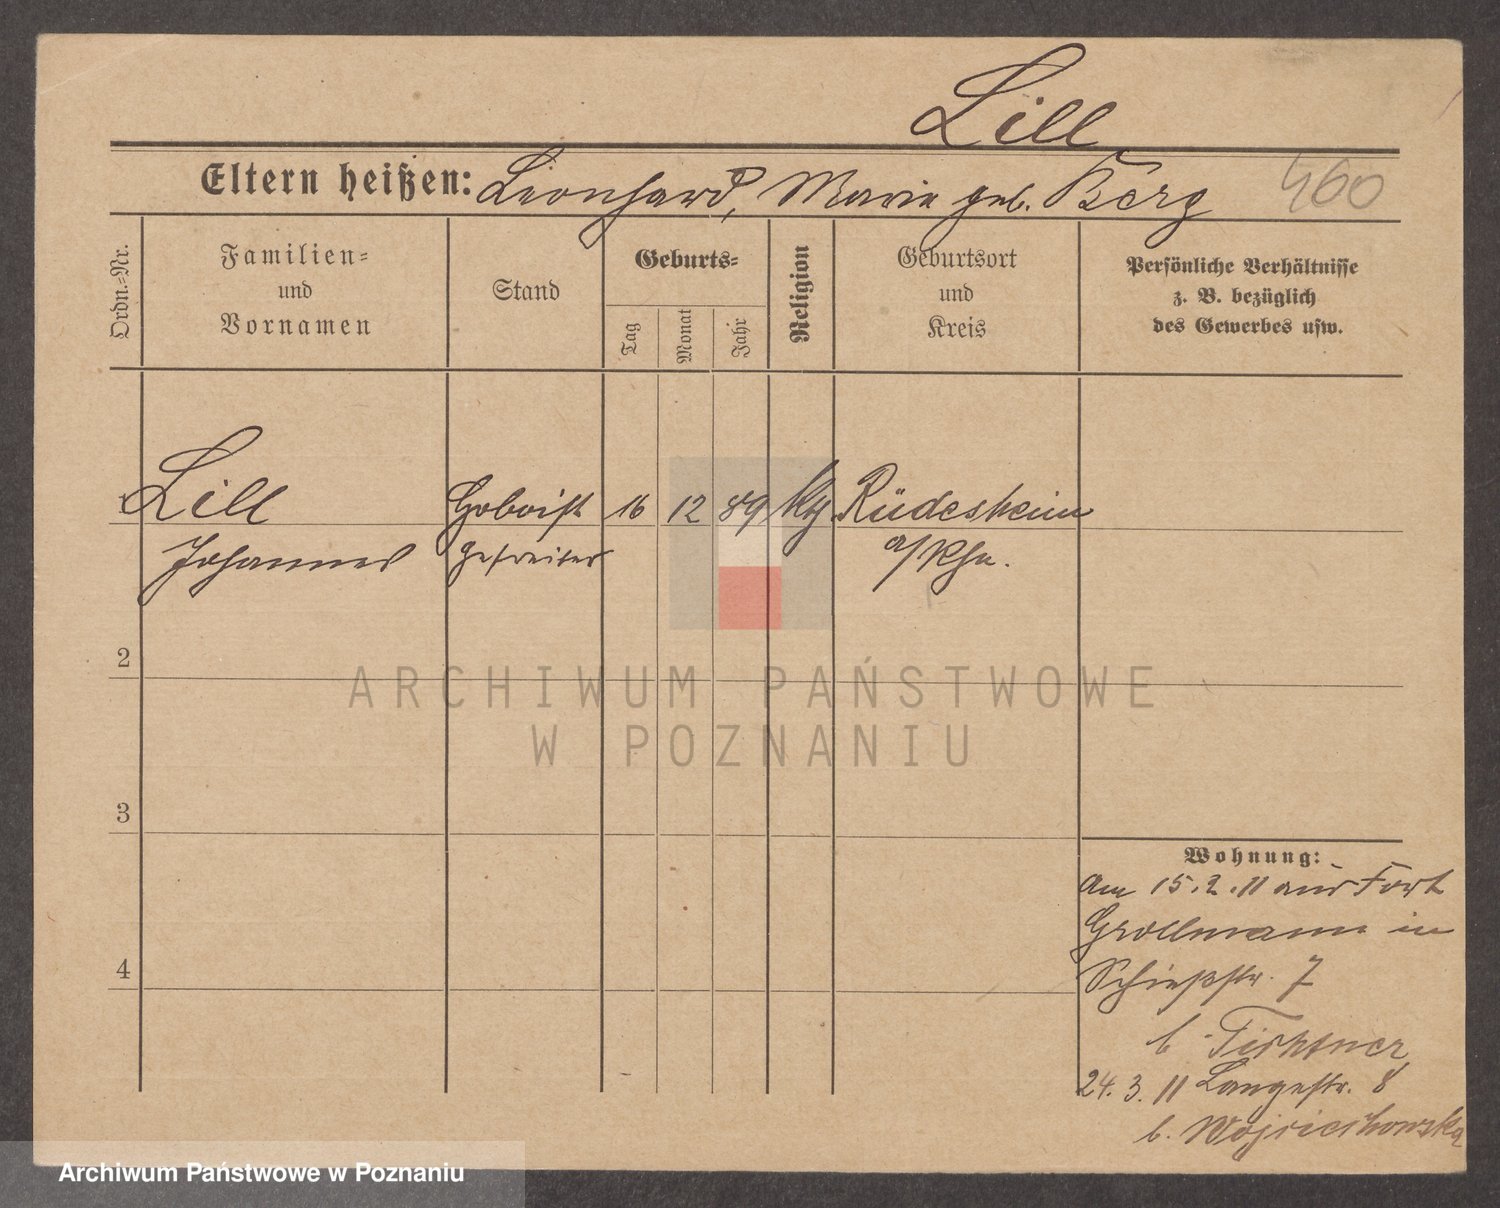 Lill
Eltern heißen: Leonhard, Marie geb. Berg
460
Ordn.=Nr.
Familien=
und
Vornamen
Stand
Geburts=
Tag
Monat
Jahr
Religion
Geburtsort
und
Kreis
Persönliche Verhältnisse
z. B. bezüglich
des Gewerbes usw.
Lill Hoboist 16 12 89 kth Rüdesheim
Johannes Gefreiter a/Rhn.
2
3
4
Wohnung:
am 15.2.11 aus Fort
Grollmann in
Schießstr. 7
b. Fichtner
24.3.11 Langestr. 8
b. Wojciechowska
ARCHIWUM PAŃSTWOWE
W POZNANIU
Archiwum Państwowe w Poznaniu